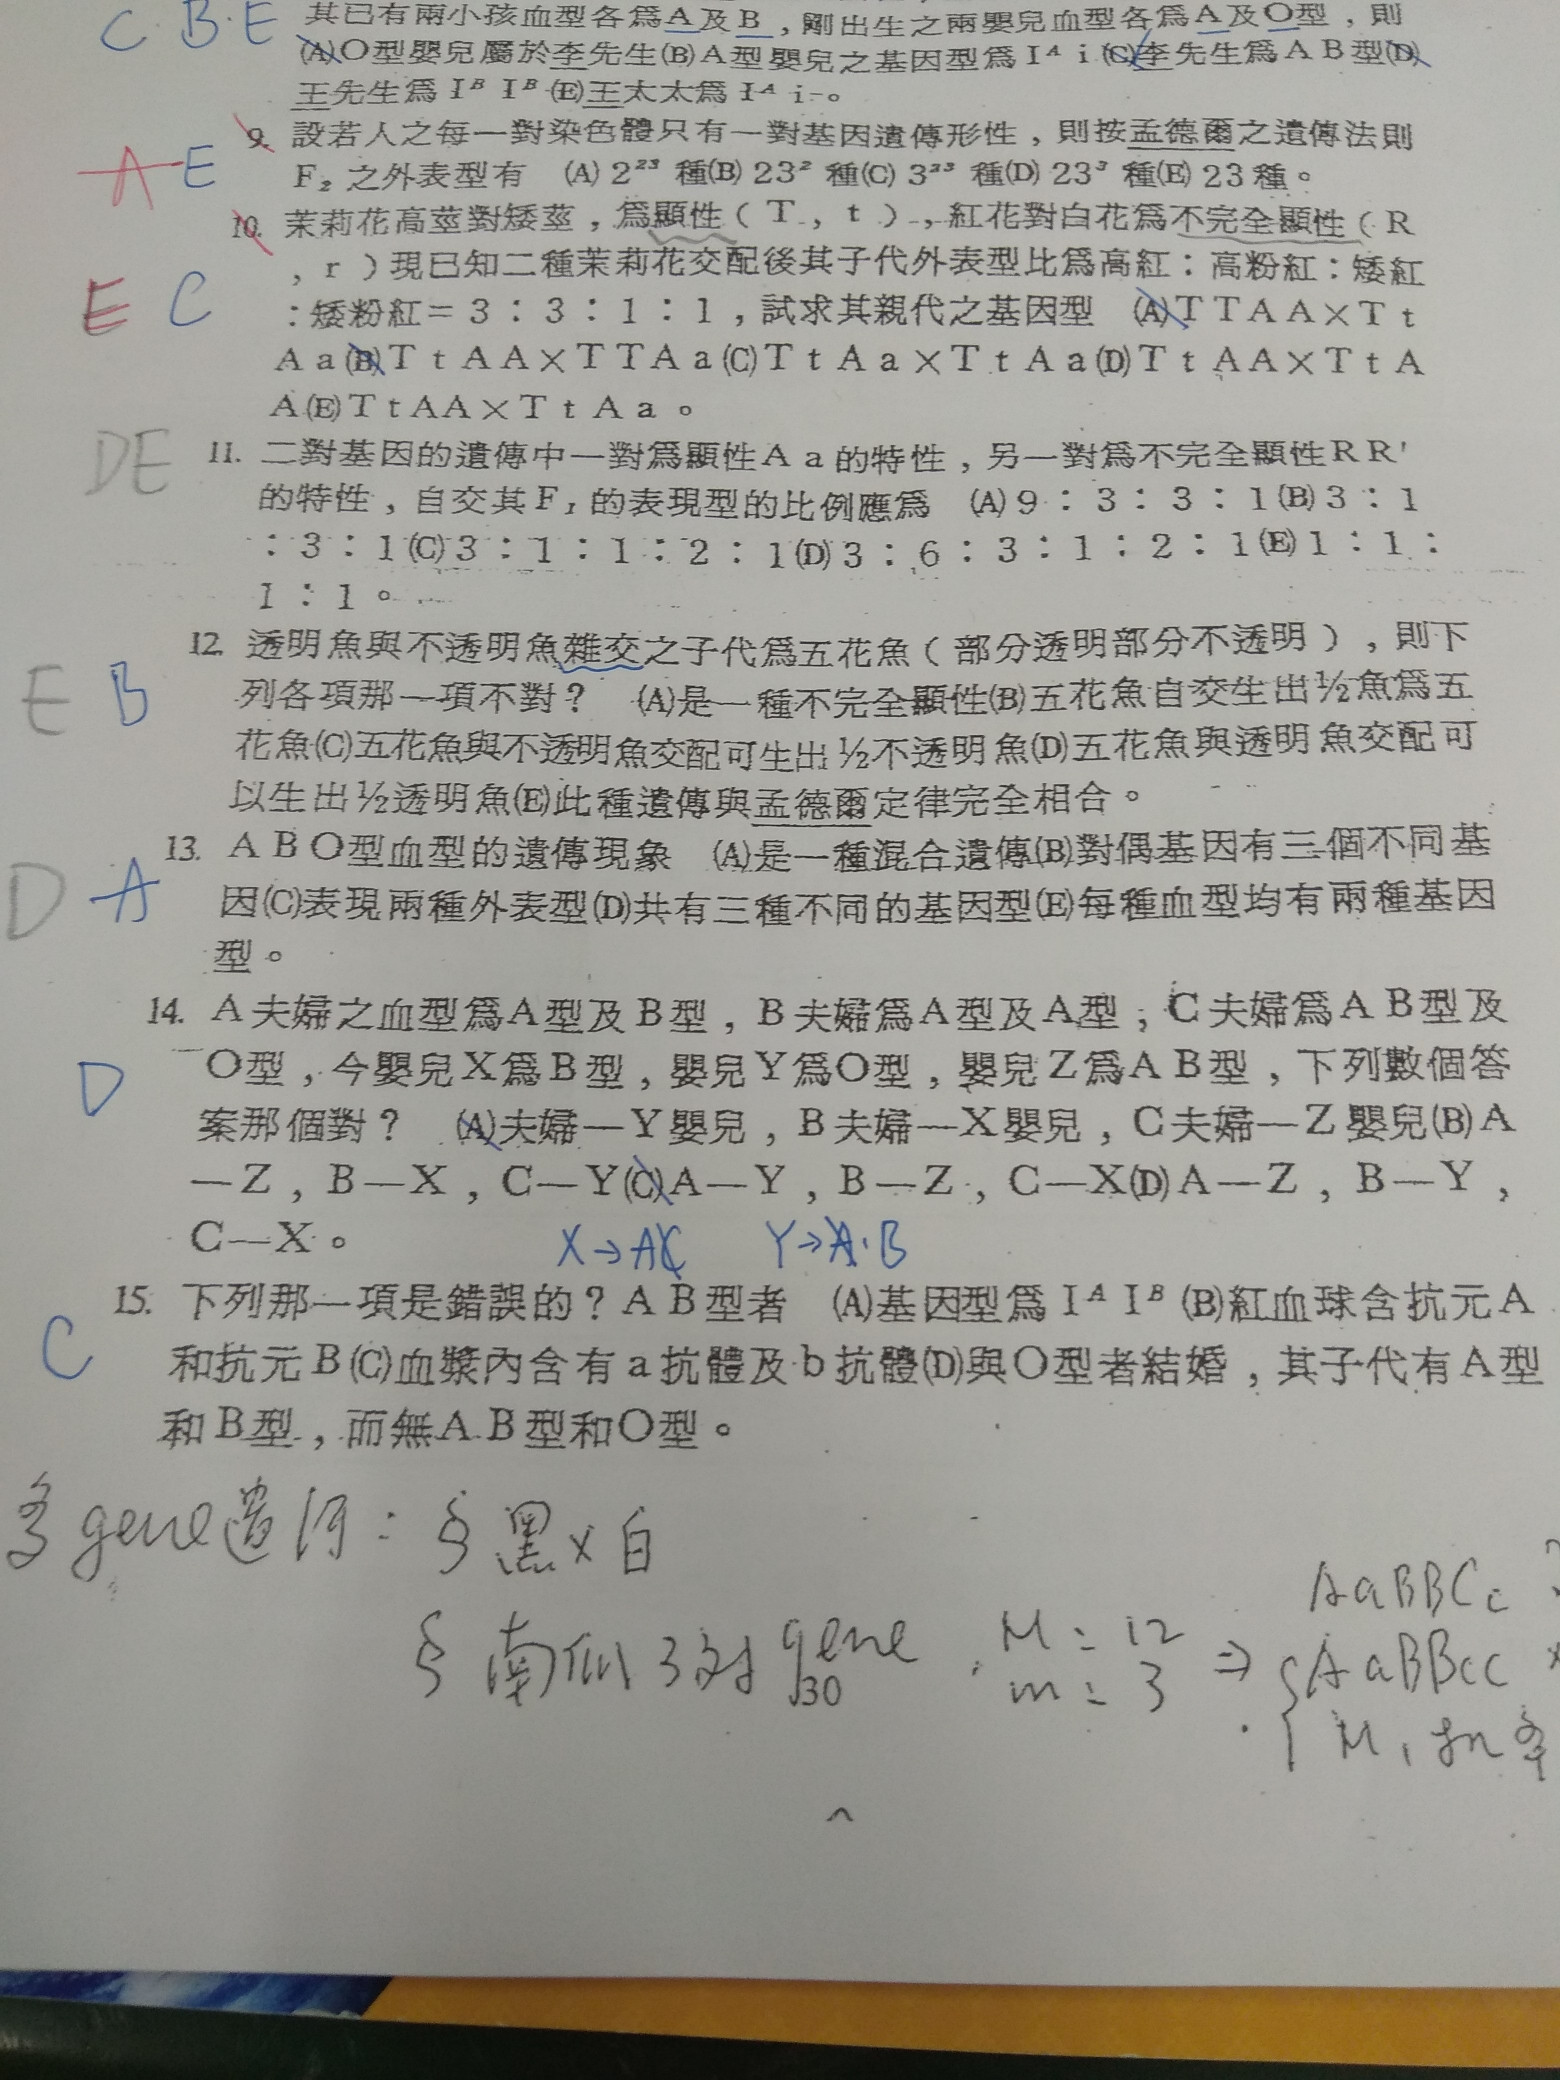 C B.E 其已有兩小孩血型各爲A及B，剛出生之兩嬰兒血型各爲A及O型，則
(A)O型嬰兒屬於李先生(B)A型嬰兒之基因型爲Iᴬ i (C)李先生爲AB型(D)
王先生爲Iᴮ Iᴮ (E)王太太爲Iᴬ i 。
9. 設若人之每一對染色體只有一對基因遺傳形性，則按孟德爾之遺傳法則
A E F₂ 之外表型有 (A) 2²³ 種(B) 23² 種(C) 3²³ 種(D) 23³ 種(E) 23 種。
10. 茉莉花高莖對矮莖，爲顯性（T，t），紅花對白花爲不完全顯性（R
，r）現已知二種茉莉花交配後其子代外表型比爲高紅：高粉紅：矮紅
E C ：矮粉紅＝3：3：1：1，試求其親代之基因型 (A)TTAA×Tt
Aa(B)TtAA×TTAa(C)TtAa×TtAa(D)TtAA×TtA
A(E)TtAA×TtAa。
DE 11. 二對基因的遺傳中一對爲顯性Aa的特性，另一對爲不完全顯性RR'
的特性，自交其F₁的表現型的比例應爲 (A)9：3：3：1(B)3：1
：3：1(C)3：1：1：2：1(D)3：6：3：1：2：1(E)1：1：
1：1。
12. 透明魚與不透明魚雜交之子代爲五花魚（部分透明部分不透明），則下
E B 列各項那一項不對？ (A)是一種不完全顯性(B)五花魚自交生出½魚爲五
花魚(C)五花魚與不透明魚交配可生出½不透明魚(D)五花魚與透明魚交配可
以生出½透明魚(E)此種遺傳與孟德爾定律完全相合。
13. ABO型血型的遺傳現象 (A)是一種混合遺傳(B)對偶基因有三個不同基
D A 因(C)表現兩種外表型(D)共有三種不同的基因型(E)每種血型均有兩種基因
型。
14. A夫婦之血型爲A型及B型，B夫婦爲A型及A型，C夫婦爲AB型及
D O型，今嬰兒X爲B型，嬰兒Y爲O型，嬰兒Z爲AB型，下列數個答
案那個對？ (A)夫婦—Y嬰兒，B夫婦—X嬰兒，C夫婦—Z嬰兒(B)A
—Z，B—X，C—Y(C)A—Y，B—Z，C—X(D)A—Z，B—Y，
C—X。 X→AC Y→A.B
15. 下列那一項是錯誤的？AB型者 (A)基因型爲Iᴬ Iᴮ (B)紅血球含抗元A
C 和抗元B(C)血漿內含有a抗體及b抗體(D)與O型者結婚，其子代有A型
和B型，而無AB型和O型。
多gene遺傳：§ 黑×白
AaBBCc
§ 南瓜 3對gene，M：12 ⇒ AaBBcc
30 m：3
M，m